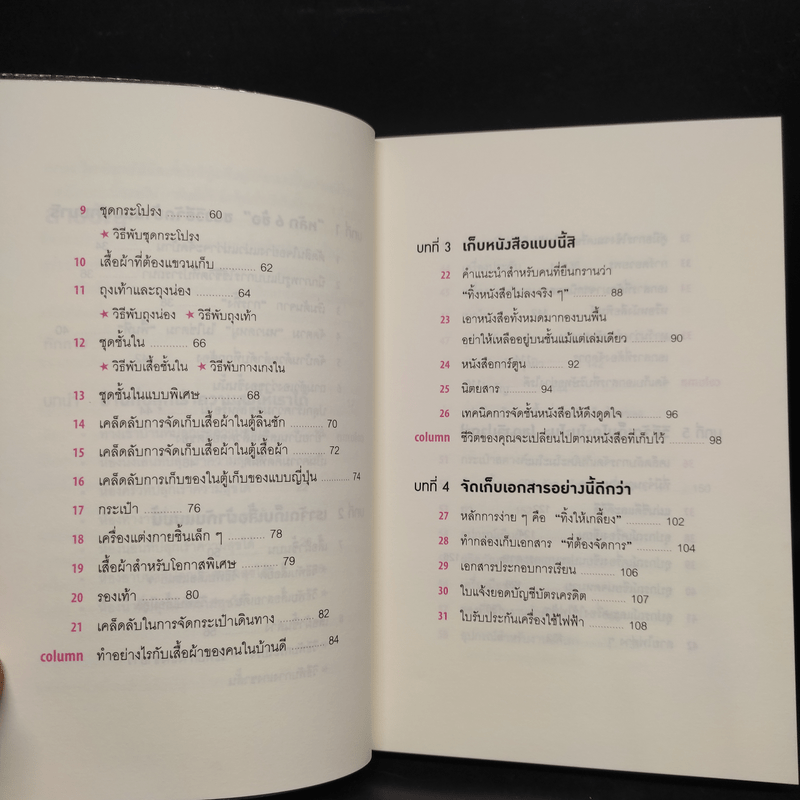 9 ชุดกระโปรง .......... 60
★ วิธีพับชุดกระโปรง
10 เสื้อผ้าที่ต้องแขวนเก็บ .......... 62
11 ถุงเท้าและถุงน่อง .......... 64
★ วิธีพับถุงน่อง ★ วิธีพับถุงเท้า
12 ชุดชั้นใน .......... 66
★ วิธีพับเสื้อชั้นใน ★ วิธีพับกางเกงใน
13 ชุดชั้นในแบบพิเศษ .......... 68
14 เคล็ดลับการจัดเก็บเสื้อผ้าในตู้ลิ้นชัก .......... 70
15 เคล็ดลับการจัดเก็บเสื้อผ้าในตู้เสื้อผ้า .......... 72
16 เคล็ดลับการเก็บของในตู้เก็บของแบบญี่ปุ่น .......... 74
17 กระเป๋า .......... 76
18 เครื่องแต่งกายชิ้นเล็ก ๆ .......... 78
19 เสื้อผ้าสำหรับโอกาสพิเศษ .......... 79
20 รองเท้า .......... 80
21 เคล็ดลับในการจัดกระเป๋าเดินทาง .......... 82
column ทำอย่างไรกับเสื้อผ้าของคนในบ้านดี .......... 84
บทที่ 3 เก็บหนังสือแบบนี้สิ
22 คำแนะนำสำหรับคนที่ยืนกรานว่า
“ทิ้งหนังสือไม่ลงจริง ๆ” .......... 88
23 เอาหนังสือทั้งหมดมากองบนพื้น
อย่าให้เหลืออยู่บนชั้นแม้แต่เล่มเดียว .......... 90
24 หนังสือการ์ตูน .......... 92
25 นิตยสาร .......... 94
26 เทคนิคการจัดชั้นหนังสือให้ดึงดูดใจ .......... 96
column ชีวิตของคุณจะเปลี่ยนไปตามหนังสือที่เก็บไว้ .......... 98
บทที่ 4 จัดเก็บเอกสารอย่างนี้ดีกว่า
27 หลักการง่าย ๆ คือ “ทิ้งให้เกลี้ยง” .......... 102
28 ทำกล่องเก็บเอกสาร “ที่ต้องจัดการ” .......... 104
29 เอกสารประกอบการเรียน .......... 106
30 ใบแจ้งยอดบัญชีบัตรเครดิต .......... 107
31 ใบรับประกันเครื่องใช้ไฟฟ้า .......... 108